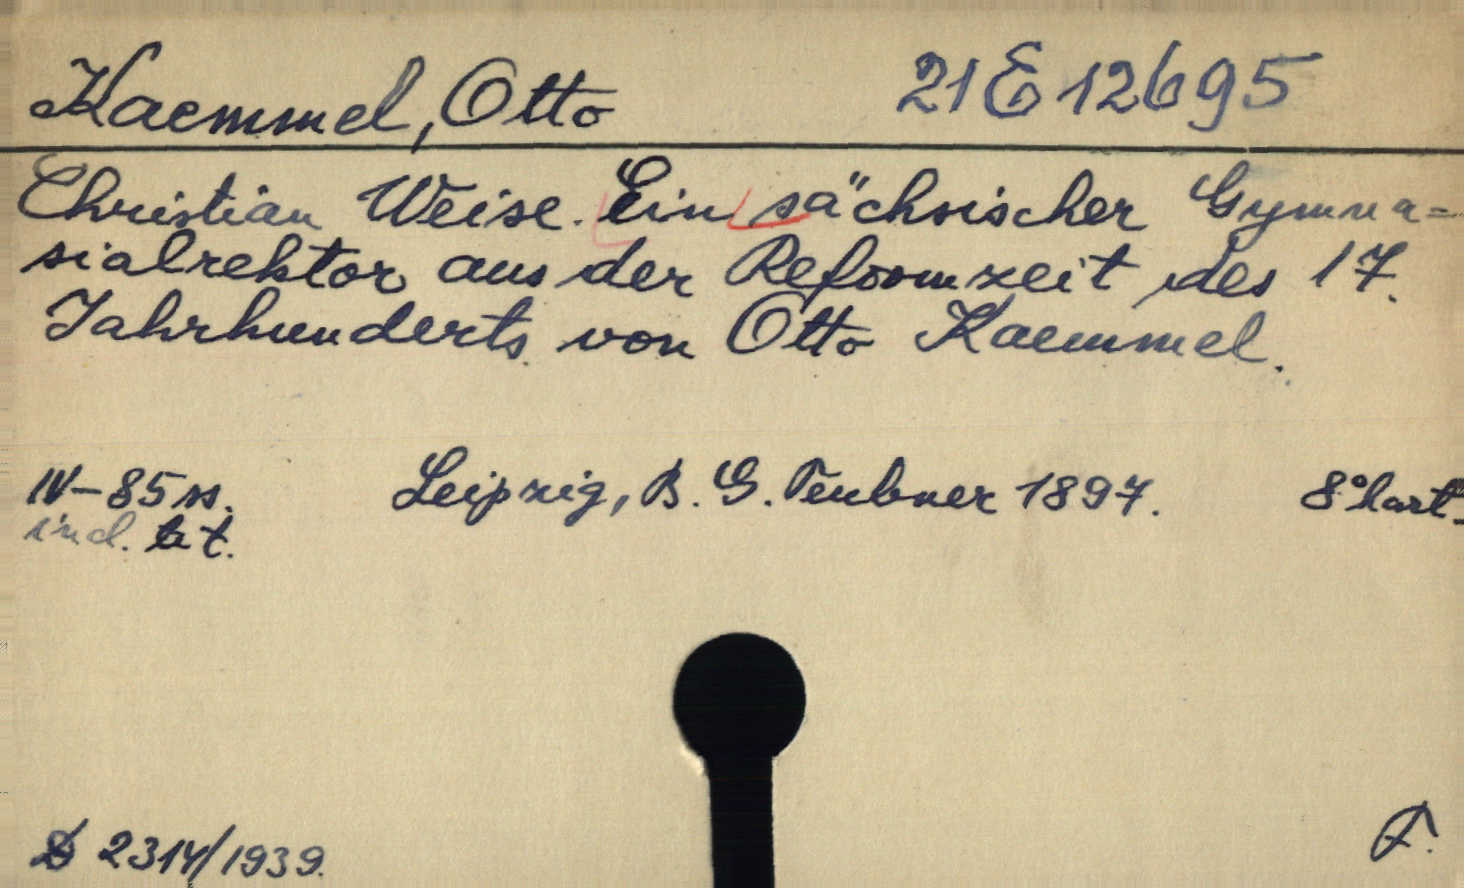 Kaemmel, Otto 21 E 12695
Christian Weise. Ein sächsischer Gymna=
sialrektor aus der Reformzeit des 17.
Jahrhunderts von Otto Kaemmel.
IV-85 ss. Leipzig, B. G. Teubner 1897. 8° kart.
incl. tit.
D 2314/1939.
F.